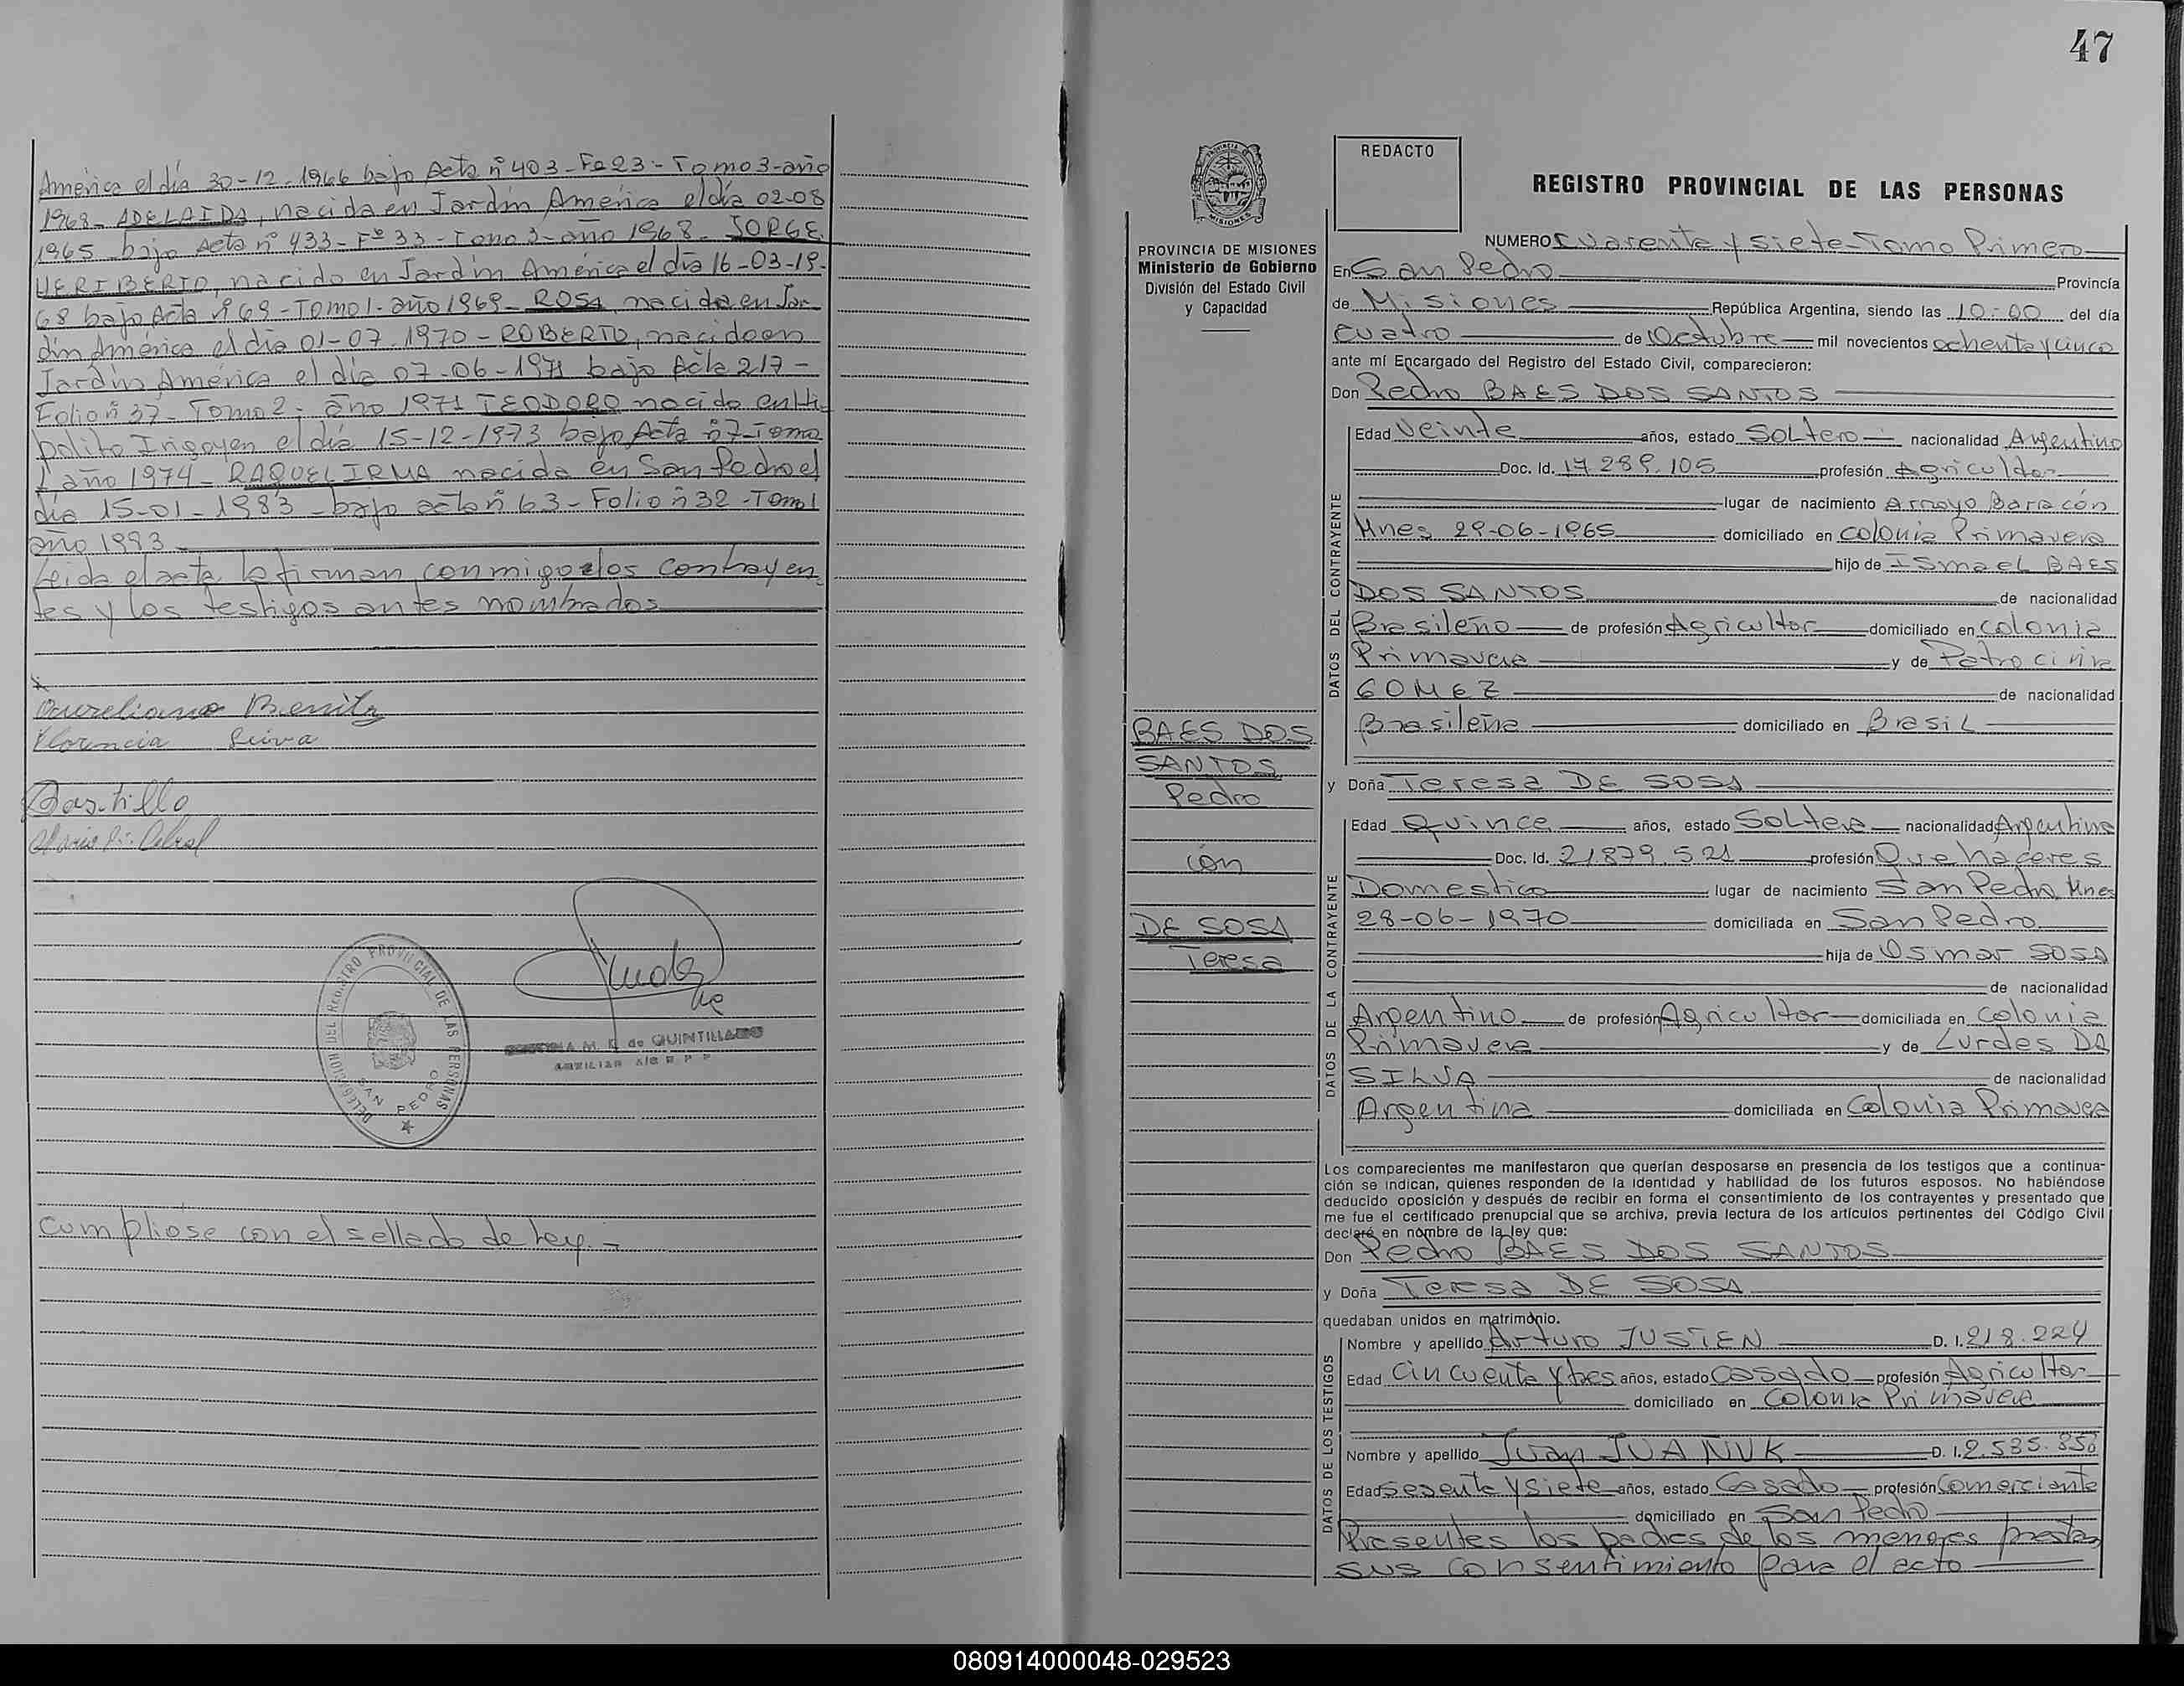 América el día 30-12-1966 bajo Acta nº 403-Fº 23-Tomo 3-año
1968- ADELAIDA, nacida en Jardín América el día 02-08
1965 bajo Acta nº 433-Fº 33-Tomo 3-año 1968- JORGE
HERIBERTO, nacido en Jardín América el día 16-03-19-
68 bajo Acta nº 69-Tomo 1-año 1969- ROSA nacida en Jar-
dín América el día 01-07-1970- ROBERTO, nacido en
Jardín América el día 07-06-1971 bajo Acta 217-
Folio nº 37- Tomo 2- año 1971 TEODORO nacido en Hi-
polito Irigoyen el día 15-12-1973 bajo Acta nº 7-Tomo
1 año 1974- RAQUEL IRMA nacida en San Pedro el
día 15-01-1983 -bajo acta nº 63- Folio nº 32 -Tomo 1
año 1983
Leida el acta la firman conmigo los contrayen-
tes y los testigos antes nombrados
Aureliano Benitz
Florencia Silva
Castillo
DELEGACION DEL REGISTRO PROVINCIAL DE LAS PERSONAS
SAN PEDRO
M. E. de QUINTILLANO
AUXILIAR A/C R P P
Cumpliose con el sellado de Ley.-
47
REDACTO
REGISTRO PROVINCIAL DE LAS PERSONAS
PROVINCIA DE MISIONES
Ministerio de Gobierno
División del Estado Civil
y Capacidad
BAES DOS
SANTOS
Pedro
con
DE SOSA
Teresa
NUMERO Cuarenta y Siete-Tomo Primero
En San Pedro Provincia
de Misiones República Argentina, siendo las 10:00 del día
cuatro de Octubre mil novecientos ochenta y cinco
ante mí Encargado del Registro del Estado Civil, comparecieron:
Don Pedro BAES DOS SANTOS
DATOS DEL CONTRAYENTE
Edad Veinte años, estado Soltero nacionalidad Argentino
Doc. Id. 17.289.105 profesión Agricultor
lugar de nacimiento Arroyo Barracón
Mnes 29-06-1965 domiciliado en Colonia Primavera
hijo de Ismael BAES
DOS SANTOS de nacionalidad
Brasileño de profesión Agricultor domiciliado en Colonia
Primavera y de Patrocinia
GOMEZ de nacionalidad
Brasileña domiciliado en Brasil
y Doña Teresa DE SOSA
DATOS DE LA CONTRAYENTE
Edad Quince años, estado Soltera nacionalidad Argentina
Doc. Id. 21.879.521 profesión Quehaceres
Domestico lugar de nacimiento San Pedro Mnes
28-06-1970 domiciliada en San Pedro
hija de Osmar SOSA
de nacionalidad
Argentino de profesión Agricultor domiciliada en Colonia
Primavera y de Lurdes DA
SILVA de nacionalidad
Argentina domiciliada en Colonia Primavera
Los comparecientes me manifestaron que querían desposarse en presencia de los testigos que a continua-
ción se indican, quienes responden de la identidad y habilidad de los futuros esposos. No habiéndose
deducido oposición y después de recibir en forma el consentimiento de los contrayentes y presentado que
me fue el certificado prenupcial que se archiva, previa lectura de los artículos pertinentes del Código Civil
declaré en nombre de la ley que:
Don Pedro BAES DOS SANTOS
y Doña Teresa DE SOSA
quedaban unidos en matrimonio.
DATOS DE LOS TESTIGOS
Nombre y apellido Arturo JUSTEN D. I. 218.224
Edad Cincuenta y tres años, estado Casado profesión Agricultor
domiciliado en Colonia Primavera
Nombre y apellido Juan JUANUK D. I. 2.535.850
Edad Sesenta y Siete años, estado Casado profesión Comerciante
domiciliado en San Pedro
Presentes los padres de los menores prestan
sus consentimiento para el acto
080914000048-029523